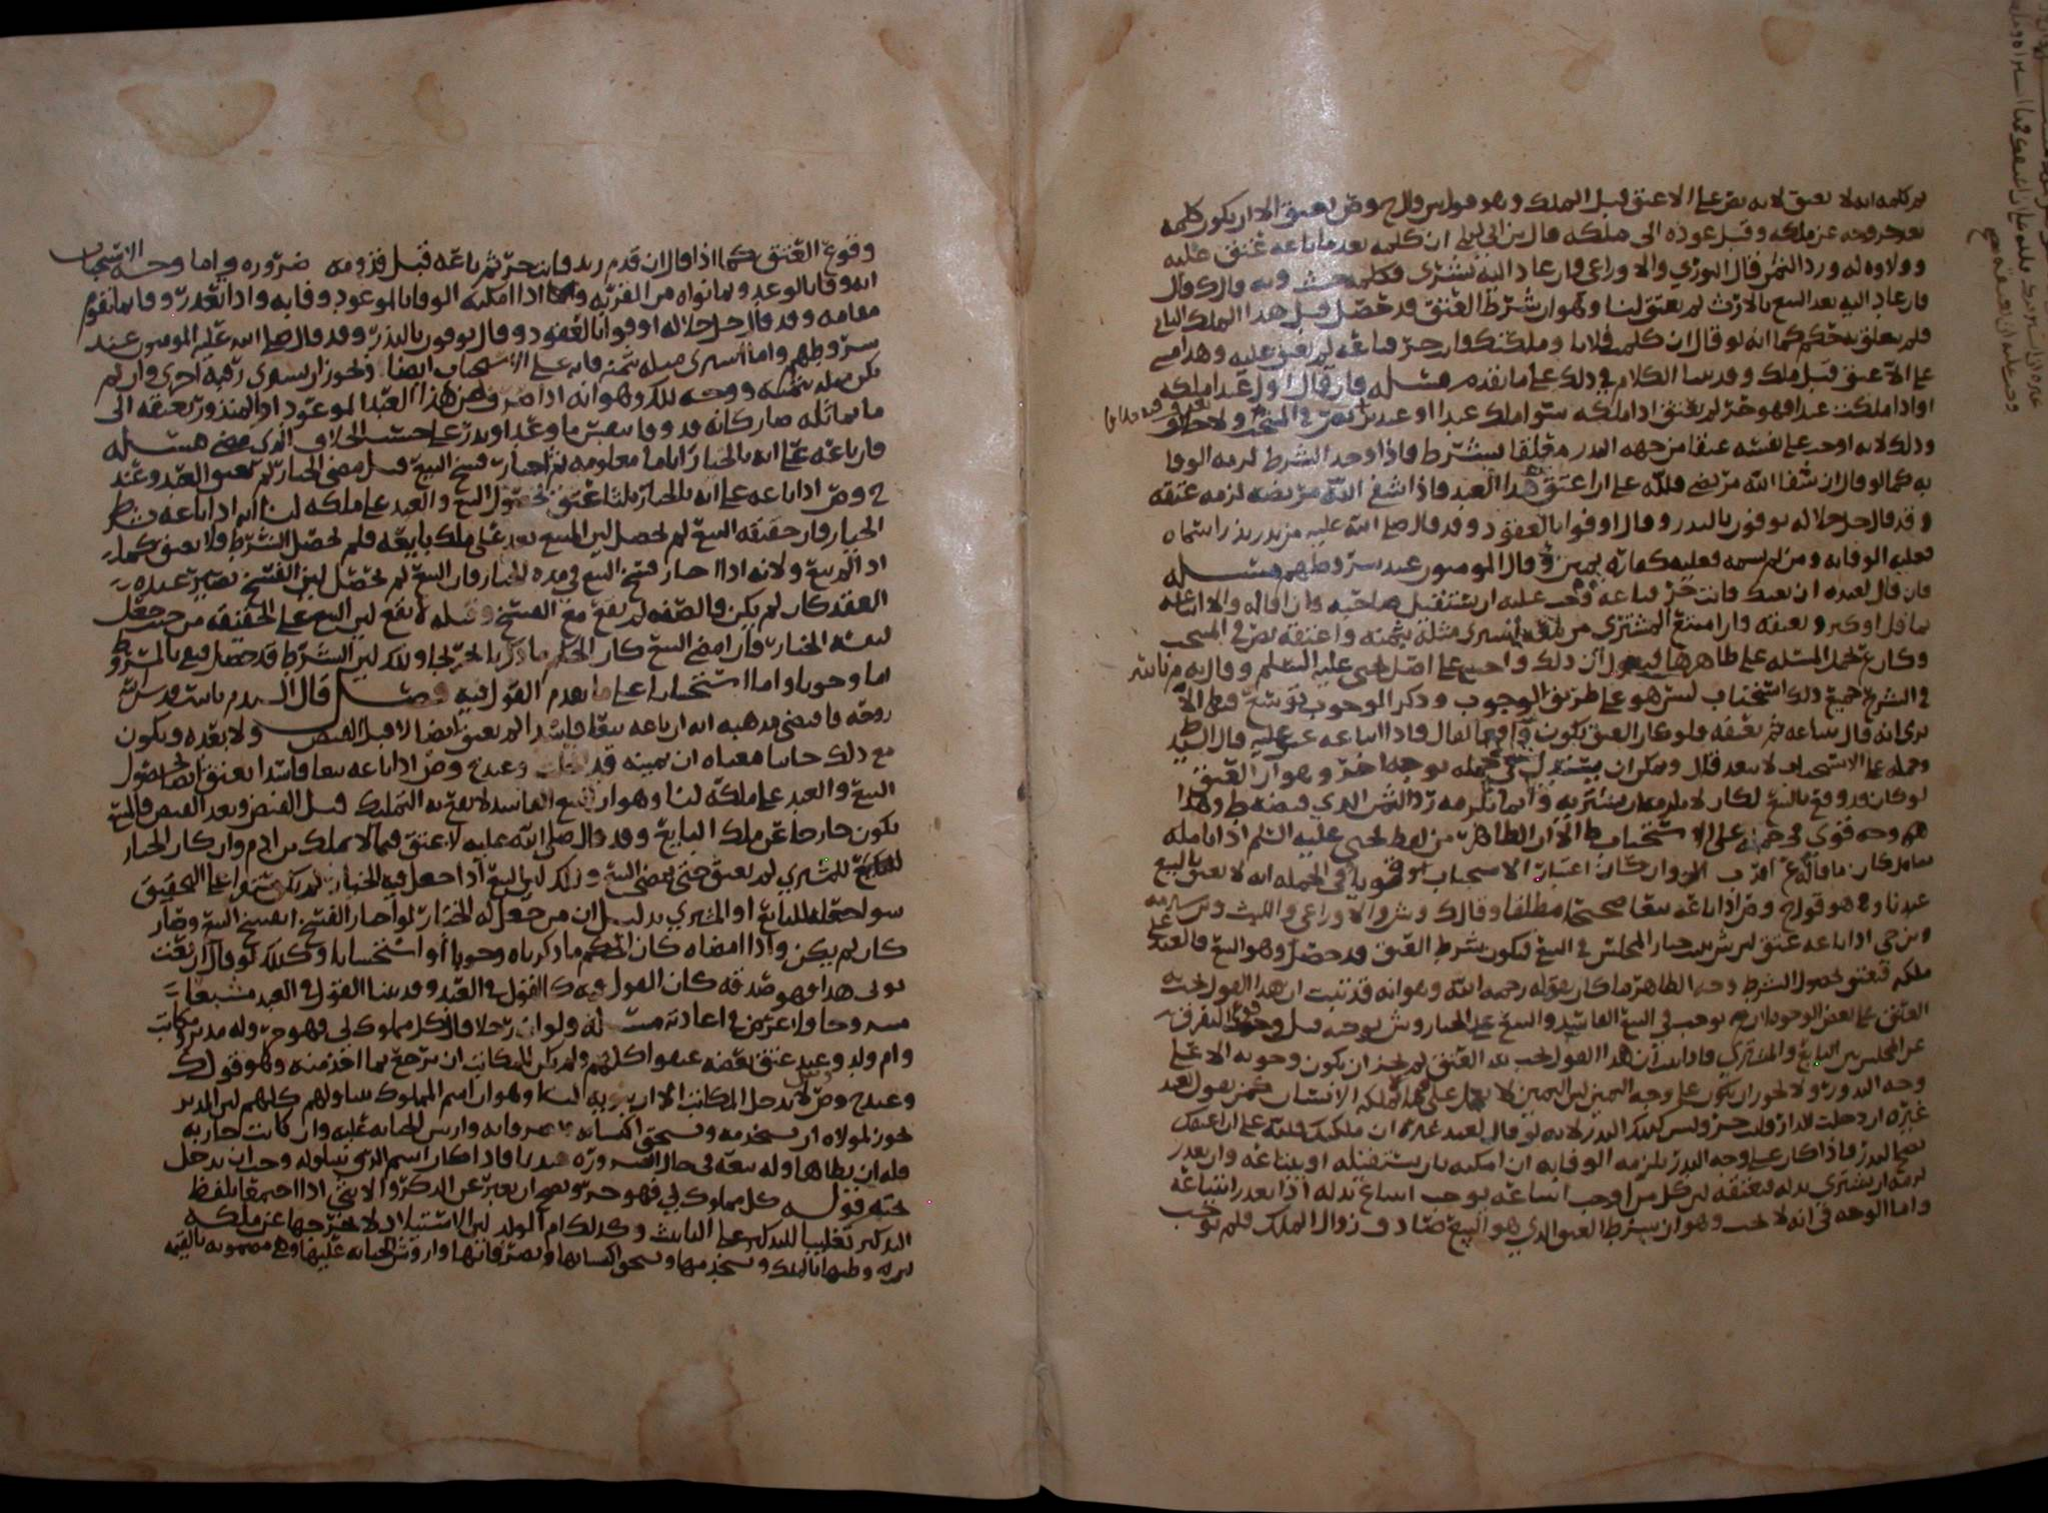 ثم كلمه انه لا يعتق لانه نص على الا عتق قبل الملك وهو قول
بعد خروجه عن ملكه وقبل عوده الى ملكه قال بن ابي ليلى ان كلمه بعد ما باعه عتق عليه
وولاوه له ورد الثمن قال الثوري والاوزاعي فان عاد اليه بشرى فكلمه حنث وبه قال ك قال
فان عاد اليه بعد البيع بالارث لم يعتق لنا وهو ان شرط العتق قد حصل قبل هذا الملك الثاني
فلم يتعلق به حكم كما انه لو قال ان كلمت فلانا وملكتك فانت حر فباعه لم يعتق عليه وهذا مبني
على الا عتق قبل ملك وقد بينا الكلام في ذلك على ما تقدم مسئله فان قال اول عبد املكه
او اذا ملكت عبدا فهو حر لم يعتق اذا ملكه سوا ملك عبدا او عبدين نص في المنتخب ولا خلاف
وذلك لانه اوجب على نفسه عتقا من جهه النذر معلقا بشرط فاذا وجد الشرط لزمه الوفا
به كما لو قال ان شفا الله مريضي فلله علي ان اعتق هذا العبد فاذا شفا الله مريضه لزمه عتقه
وقد قال جل جلاله يوفون بالنذر وقال اوفوا بالعقود وقد قال صلى الله عليه من نذر نذرا سماه
فعليه الوفا به ومن لم يسمه فعليه كفارة يمين وقال المومنون عند شروطهم مسئله
فان قال لعبده ان بعتك فانت حر فباعه وجب عليه ان يستقيل صاحبه فان اقاله والا ابتاعه
بما قل او كثر ويعتقه فان امتنع المشتري من بيعه اشترى مثله بثمنه واعتقه نص في المنتخب
وكان ع يحمل المسئله على ظاهرها فيقول ان ذلك واجب على اصل يحيى عليه السلم وقال به م بالله
في الشرح جميع ذلك استحباب ليس هو على طريق الوجوب وذكر الوجوب توسع قال الا
ترى انه قال يبتاعه ثم يعتقه فلو كان العتق يكون واقعا لقال فاذا ابتاعه عتق عليه قال السيد ط
وحمله على الاستحباب لا يبعد قال ويمكن ان يستدل على حمله بوجه اخر وهو ان العتق
لو كان قد وقع بالبيع لكان لا يلزمه ان يشتريه وانما يلزمه رد الثمن الذي قبضه ط وهذا
وجه قوي في حمله على الاستحباب ط الا ان الظاهر من لفظ يحيى عليه السلم اذا تامله
عندنا وهو قول ح وص اذا باعه بيعا صحيحا مطلقا وقال ك وش والاوزاعي والليث
وبن حي اذا باعه عتق لان ش يثبت خيار المجلس في البيع فيكون شرط العتق قد حصل وهو البيع والعبد على
ملكه فيعتق لحصول الشرط وجه الظاهر ما كان يقوله رحمه الله وهو انه قد ثبت ان هذا القول يجب به
العتق على بعض الوجوه
عن المجلس بين البايع والمشتري فاذا ثبت ان هذا القول يجب به العتق لم يجز ان يكون وجوبه الا على
وجه النذر ولا يجوز ان يكون على وجه اليمين لان اليمين
غيره ان دخلت الدار فانت حر وليس كذلك النذر لانه لو قال لعبد غيره ان ملكتك فلله علي ان اعتقك
صح النذر فاذا كان على وجه النذر يلزمه الوفا به ان امكنه بان يستقيله او يبتاعه وان تعذر
لزمه ان يشتري بدله ليعتقه لان كل من اوجب ابتياعه يوجب ابتياع بدله اذا تعذر ابتياعه
واما الوجه في انه لا يجب وهو ان شرط العتق الذي هو البيع صادف زوال الملك فلم يوجب
وقوع العتق كما اذا قال ان قدم زيد فانت حر ثم باعه قبل قدومه ضروره واما وجه الاستحباب
انه وفا بالوعد ولما نواه من القربه اذا امكنه الوفا بالموعود وفا به واذا تعذر وفا بما يقوم
مقامه وقد قال جل جلاله اوفوا بالعقود وقال يوفون بالنذر وقد قال صلى الله عليه المومنون عند
شروطهم واما شرى مثله بثمنه فانه على الاستحباب ايضا ويجوز ان يشترى رقبه اخرى وان لم
تكن مثله بثمنه ووجه ذلك وهو انه اذا صرف ثمن هذا العبد الموعود او المنذور بعتقه الى
ما يماثله صار كانه قد وفا بعين ما وعد او نذر على حسب الخلاف الذي مضى مسئله
فان باعه على انه بالخيار اياما معلومه ثم اختار فسخ البيع قبل مضي الخيار لم يعتق العبد وعند
ح وص اذا باعه على انه بالخيار ثلثا عتق لحصول البيع والعبد على ملكه لنا انه اذا باعه بشرط
الخيار فان حقيقه البيع لم تحصل لان المبيع بعد على ملك بايعه فلم يحصل الشرط فلا يعتق كما
اذا لم يبع ولانه اذا اختار فسخ البيع في مده الخيار فان البيع لم يحصل لان الفسخ يصير عنده
العقد كان لم يكن والصفه لم تقع مع الفسخ وقبله لا يقع لان البيع على الحقيقه من حيث جعل
لنفسه الخيار فان امضى البيع كان الحكم ما ذكرنا وذلك لان الشرط قد حصل فيقع المشروط
اما وجوبا واما استحبابا على ما تقدم القول فيه فصل قال السيد م بالله قدس الله
روحه فاقتضى مذهبه انه ان باعه بيعا فاسدا لم يعتق ايضا لا قبل القبض ولا بعده ويكون
مع ذلك حانثا معناه ان يمينه قد انحلت وعند ح وص اذا باعه بيعا فاسدا يعتق لحصول
البيع والعبد على ملكه لنا وهو ان البيع الفاسد لا يقع به التمليك قبل القبض وبعد القبض فالبيع
يكون خارجا عن ملك البايع وقد قال صلى الله عليه لا عتق فيما لا يملك بن ادم وان كان الخيار
للمشتري لم يعتق حتى يمضي البيع وذلك لان البيع اذا جعل فيه الخيار لم يكن مستقرا على التحقيق
سوا جعل للبايع او المشتري بدليل ان من جعل له الخيار لو اختار الفسخ انفسخ البيع وصار
كان لم يكن واذا امضاه كان الحكم ما ذكرناه وجوبا او استحبابا وكذلك لو قال ان بعت
ثوبي هذا فهو صدقه كان القول فيه كالقول في العبد وقد بينا القول في العبد مشبعا
مشروحا ولا غرض في اعادته مسئله ولو ان رجلا قال كل مملوك لي فهو حر وله مدبر ومكاتب
وام ولد وعبد عتق بعضه عتقوا كلهم ولم يكن للمكاتب ان يرجع بما اخذ منه وهو قول ك
وعند ح وص لا يدخل المكاتب الا ان ينويه لنا وهو ان اسم المملوك يتناولهم كلهم لان المدبر
يجوز لمولاه ان يستخدمه ويستحق اكسابه وارش الجنايه عليه وان كانت جاريه
فله ان يطاها وله بيعه في حال الضروره عندنا فاذا كان اسم الرق يتناوله وجب ان يدخل
تحت قوله كل مملوك لي فهو حر ويصح ان يعبر عن الذكر والانثى اذا اجتمعا بلفظ
التذكير تغليبا للتذكير على التانيث وكذلك ام الولد لان الاستيلاد لا يخرجها عن ملكه
وطئها بالملك ويستخدمها ويستحق اكسابها وارش الجنايه عليها وهي مضمونه بالقيمه